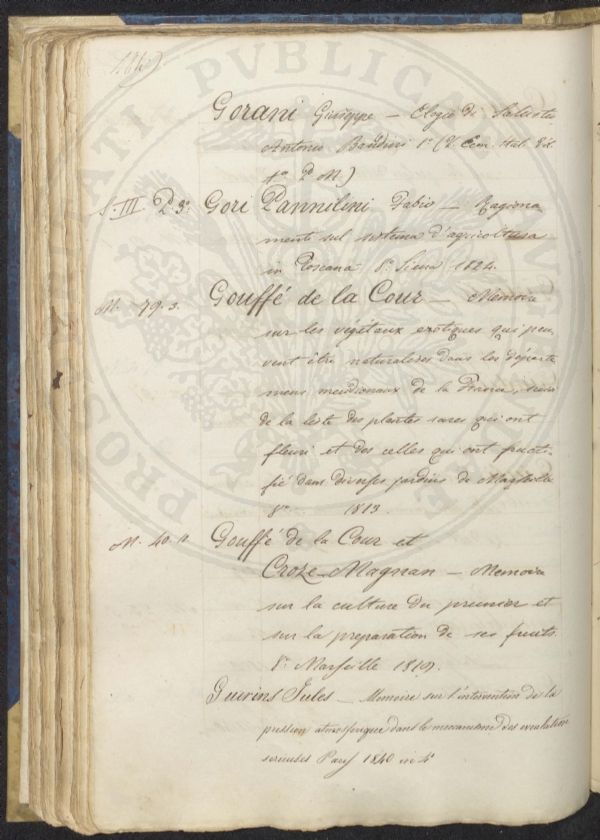 184)
Gorani Giuseppe — Elogio di Salustio
Antonio Bandini 1º (V. Econ. Ital. Ed.
P M.)
S. III P. 3º Gori Pannilini Fabio — Ragiona
menti sul sistema d'agricoltura
in Toscana 8º Siena 1824.
M. 79. 3. Gouffé de la Cour — Memoire
sur les végétaux exotiques qui peu
vent être naturalises dans les départe
mens meridionaux de la France, suivi
de la liste des plantes rares qui ont
fleuri et des celles qui ont fructi-
fié dans divers jardins de Marseille
8º 1813.
M. 40. 11 Gouffé de la Cour et
Croze-Magnan — Memoire
sur la culture du prunier et
sur la preparation de ses fruits.
8º Marseille 1819.
Guerins Jules — Memoire sur l'intervention de la
pression atmosferique dans le mecanisme des exalation
sereuses Paris 1840 in 4º
PROCURATI PUBLICAE